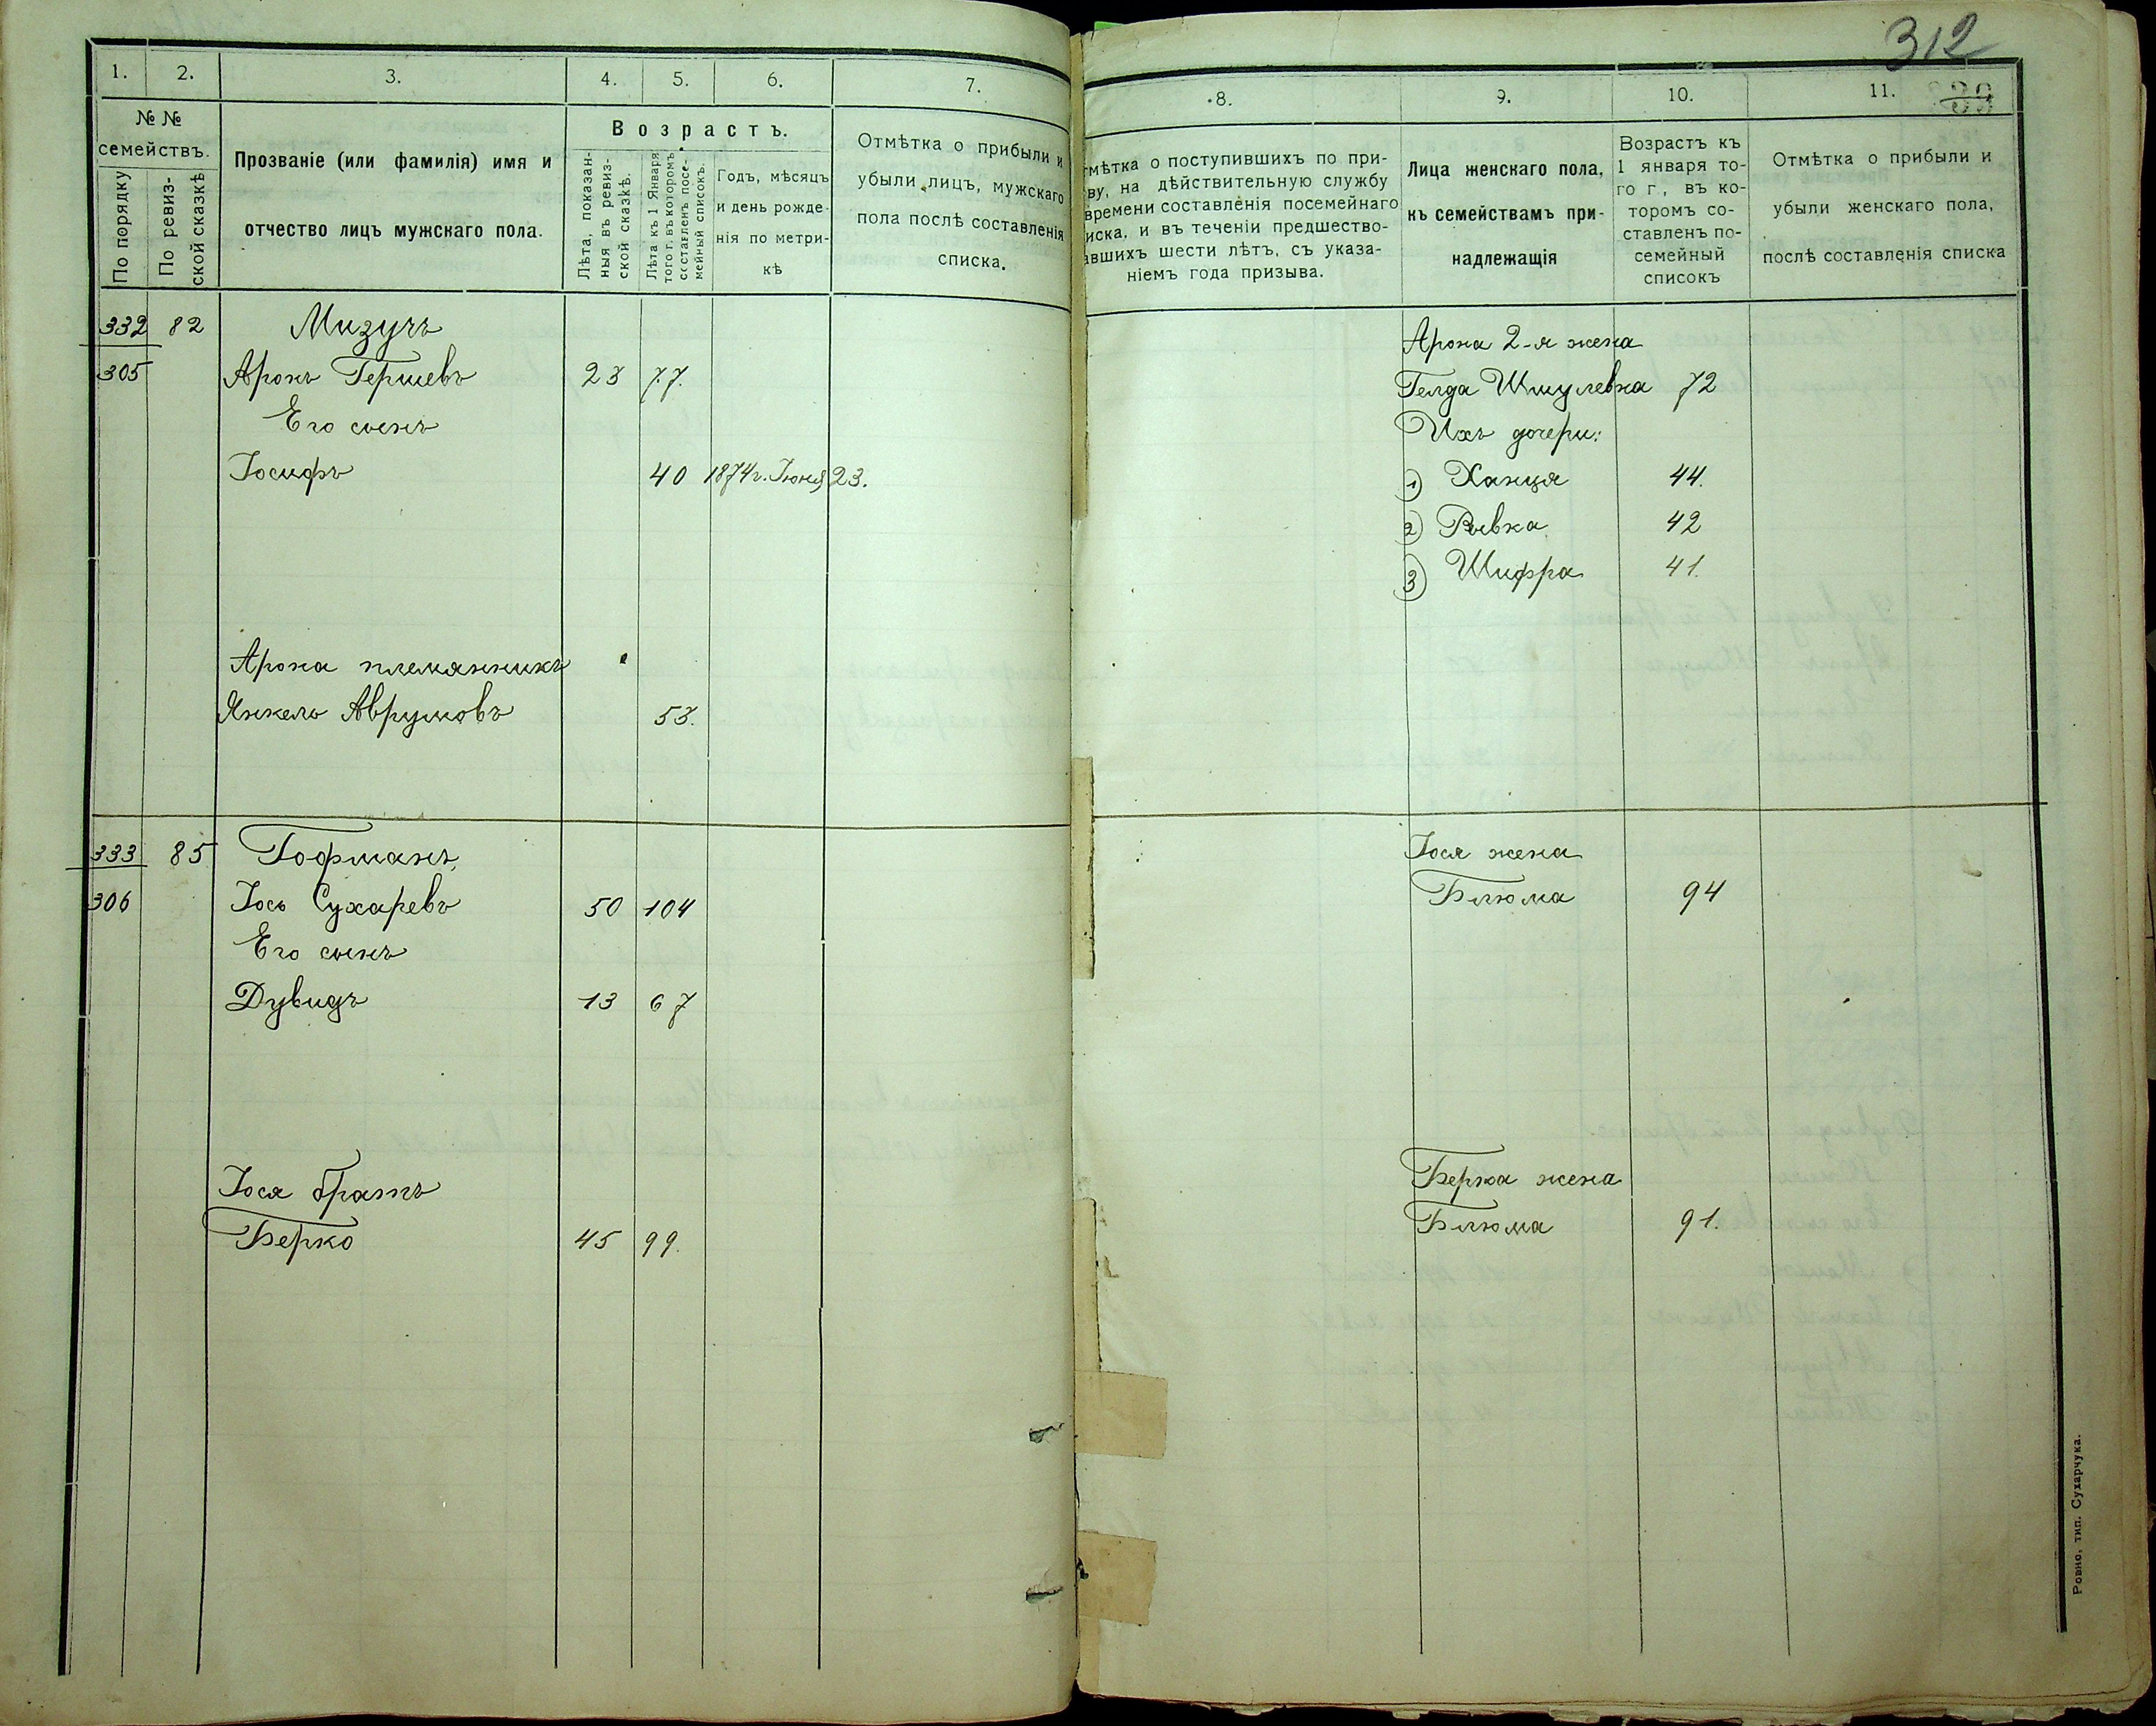 312
1. 2. 3. 4. 5. 6. 7.
№ №
семействъ.
По порядку
По ревиз-
ской сказкѣ
Прозваніе (или фамилія) имя и
отчество лицъ мужскаго пола.
Возрастъ.
Лѣта, показан-
ныя въ ревиз-
ской сказкѣ.
Лѣта къ 1 Января
того г. въ которомъ
составленъ посе-
мейный списокъ.
Годъ, мѣсяцъ
и день рожде-
нія по метри-
кѣ
Отмѣтка о прибыли и
убыли лицъ, мужскаго
пола послѣ составленія
списка.
332 82 Мизучъ
305 Аронъ Гершевъ 23 77.
Его сынъ
Іосифъ 40 1874г. Іюня 23.
Арона племянникъ
Янкель Аврумовъ 53.
333 85 Гофманъ
306 Іось Сухаревъ 50 104
Его сынъ
Дувидъ 13 67
Іося братъ
Берко 45 99.
8. 9. 10. 11.
тмѣтка о поступившихъ по при-
ву, на дѣйствительную службу
времени составленія посемейнаго
иска, и въ теченіи предшество-
авшихъ шести лѣтъ, съ указа-
ніемъ года призыва.
Лица женскаго пола,
къ семействамъ при-
надлежащія
Возрастъ къ
1 января то-
го г., въ ко-
торомъ со-
ставленъ по-
семейный
списокъ
Отмѣтка о прибыли и
убыли женскаго пола,
послѣ составленія списка
Арона 2-я жена
Гелда Шмулевна 72
Ихъ дочери:
1) Ханця 44.
2) Рывка 42
3) Шифра 41.
Іося жена
Блюма 94
Берка жена
Блюма 91.
Ровно, тип. Сухарчука.